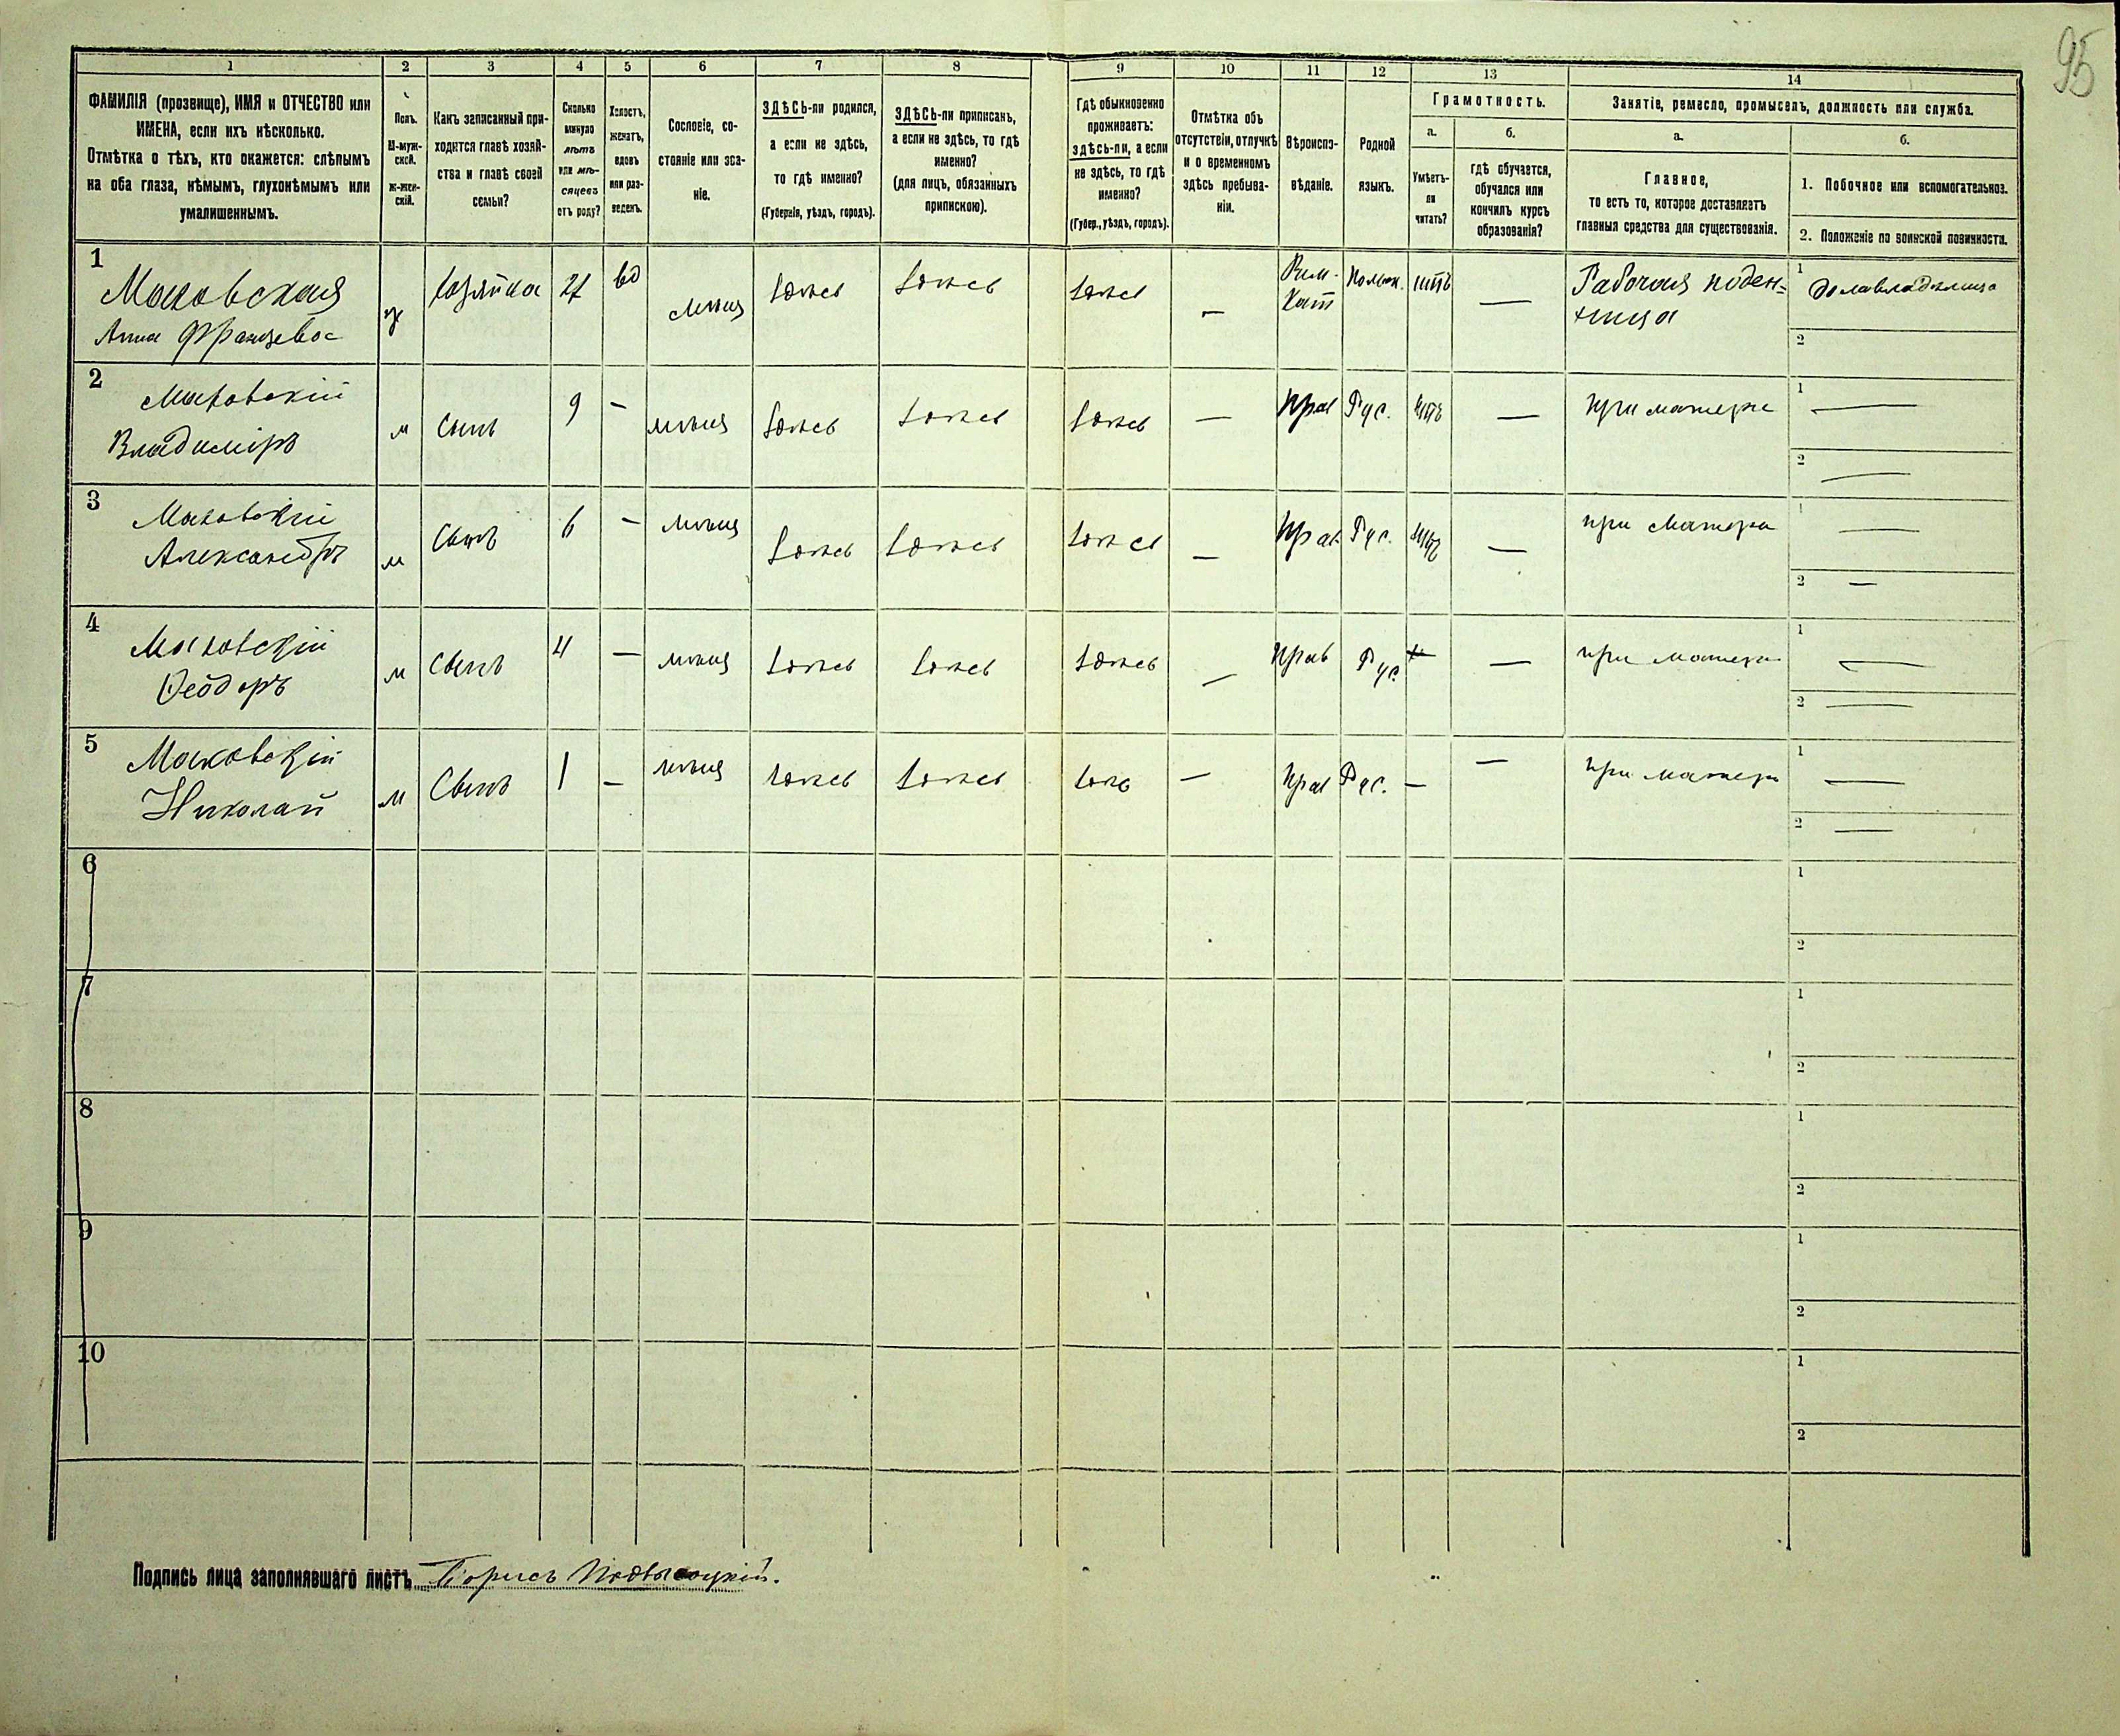 95
1 2 3 4 5 6 7 8 9 10 11 12 13 14
ФАМИЛІЯ (прозвище), ИМЯ и ОТЧЕСТВО или
ИМЕНА, если ихъ нѣсколько.
Отмѣтка о тѣхъ, кто окажется: слѣпымъ
на оба глаза, нѣмымъ, глухонѣмымъ или
умалишеннымъ.
Полъ.
М-муж-
ской.
ж-жен-
скій.
Какъ записанный при-
ходится главѣ хозяй-
ства и главѣ своей
семьи?
Сколько
минуло
лѣтъ
или мѣ-
сяцевъ
отъ роду?
Холостъ,
женатъ,
вдовъ
или раз-
веденъ.
Сословіе, со-
стояніе или зва-
ніе.
ЗДѢСЬ-ли родился,
а если не здѣсь,
то гдѣ именно?
(Губернія, уѣздъ, городъ).
ЗДѢСЬ-ли приписанъ,
а если не здѣсь, то гдѣ
именно?
(для лицъ, обязанныхъ
припискою).
Гдѣ обыкновенно
проживаетъ:
здѣсь-ли, а если
не здѣсь, то гдѣ
именно?
(Губер., уѣздъ, городъ).
Отмѣтка объ
отсутствіи, отлучкѣ
и о временномъ
здѣсь пребыва-
ніи.
Вѣроиспо-
вѣданіе.
Родной
языкъ.
Грамотность.
а.
Умѣетъ-
ли
читать?
б.
гдѣ обучается,
обучался или
кончилъ курсъ
образованія?
Занятіе, ремесло, промыселъ, должность или служба.
а.
Главное,
то есть то, которое доставляетъ
главныя средства для существованія.
б.
1. Побочное или вспомогательное.
2. Положеніе по воинской повинности.
1
Маковская
Анна Францевна
ж
хозяйка
вд
здѣсь
здѣсь
здѣсь
—
Рим.
Кат
Польск.
нѣтъ
—
Рабочая поден-
щица
1
домовладѣлица
2
2
Маковскій
Владиміръ
м
Сынъ
9
—
здѣсь
здѣсь
здѣсь
—
Прав
Рус.
нѣтъ
—
при матери
1 —
2 —
3
Маковскій
Александръ
м
Сынъ
6
—
здѣсь
здѣсь
здѣсь
—
Прав.
Рус.
нѣтъ
—
при матери
1 —
2 —
4
Маковскій
Ѳеодоръ
м
Сынъ
4
—
здѣсь
здѣсь
здѣсь
—
Прав
Рус.
—
при матери
1 —
2 —
5
Маковскій
Николай
м
Сынъ
1
—
здѣсь
здѣсь
здѣсь
—
Прав
Рус.
—
—
при матери
1 —
2 —
6
1
2
7
1
2
8
1
2
9
1
2
10
1
2
Подпись лица заполнявшаго листъ Борисъ Подвысоцкій.